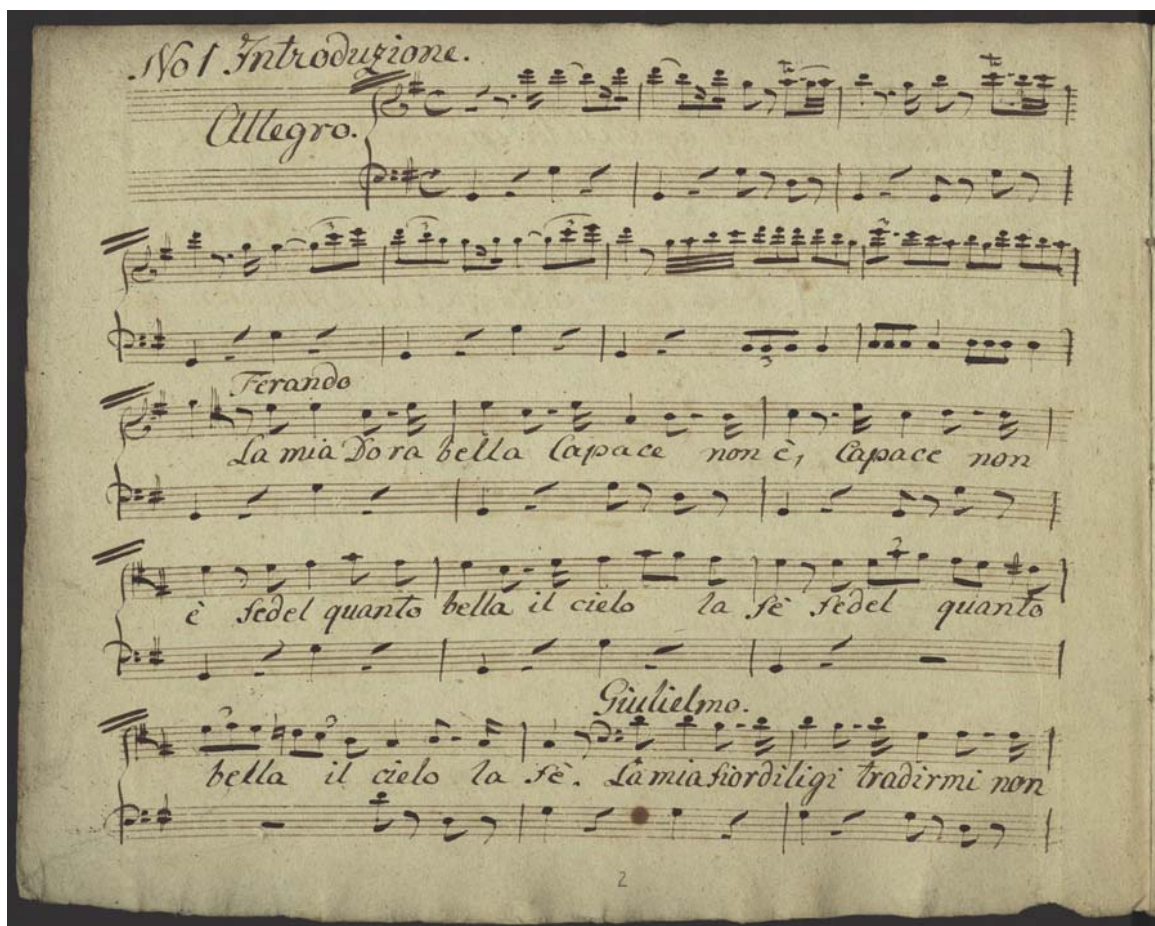 No 1 Introduzione.
Allegro.
Ferando
La mia Dora bella Capace non è, Capace non
è fedel quanto bella il cielo la fè fedel quanto
Giulielmo.
bella il cielo la fè. La mia fiordiligi tradirmi non
2